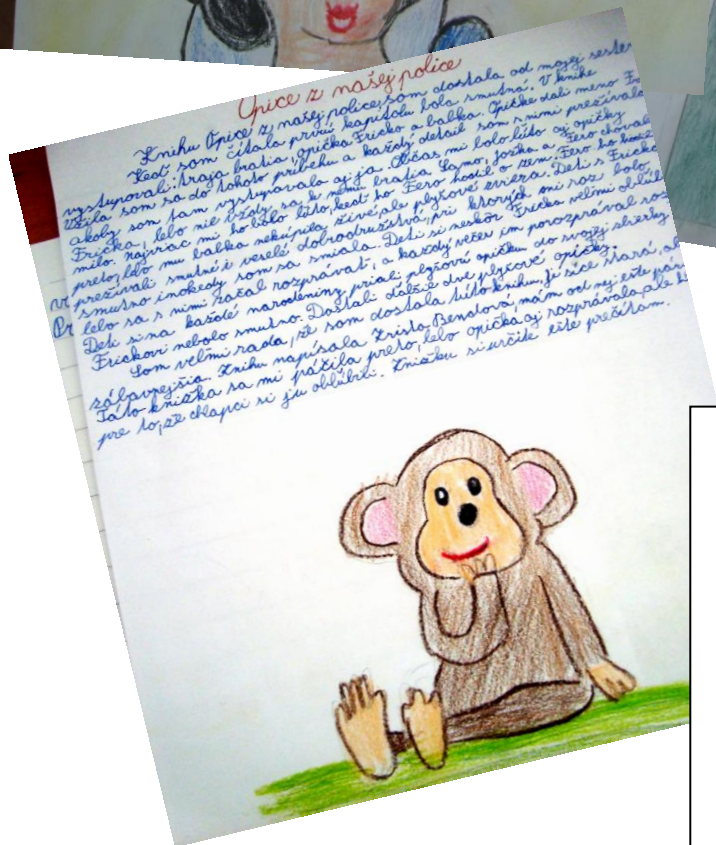 Opice z našej police
Knihu Opice z našej police, som dostala od mojej sester
Keď som čítala prvú kapitolu bola smutná. V knihe
vystupovali: traja bratia, opička Fricko a babka. Opičke dali meno
Vžila som sa do tohoto príbehu a každý detail som s nimi prežívala
akoby som tam vystupovala aj ja. Občas mi bolo ľúto aj opičky
Fricka, lebo nie vždy sa k nemu bratia Samo, Jožko a Fero chovali
milo. Najviac mi ho bolo ľúto, keď ho Fero hodil o zem. Fero ho hodil
preto, lebo mu babka nekúpila živé, ale plyšové zviera. Deti s Frickom
prežívali smutné i veselé dobrodružstvá, pri ktorých mi raz bolo
smutno inokedy som sa smiala. Deti si neskôr Fricka veľmi obľúbi
lebo sa s nimi začal rozprávať, a každý večer im porozprával
Deti si na každé narodeniny priali plyšovú opičku do svojej zbierky
Frickovi nebolo smutno. Dostali ďalšie dve plyšové opičky.
Som veľmi rada, že som dostala túto knihu, je síce stará, al
zábavnejšia. Knihu napísala Krista Bendová, mám od nej ešte
Táto knižka sa mi páčila preto, lebo opička aj rozprávala, ale
pre to, že chlapci si ju obľúbili. Knižku si určite ešte prečítam.